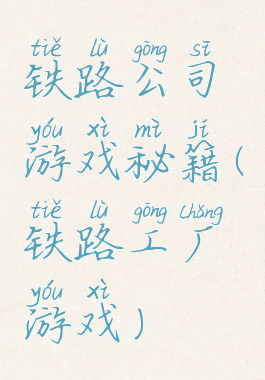 tiě lù gōng sī
铁路公司
yóu xì mì jí
游戏秘籍(
tiě lù gōng chǎng
铁路工厂
yóu xì
游戏)